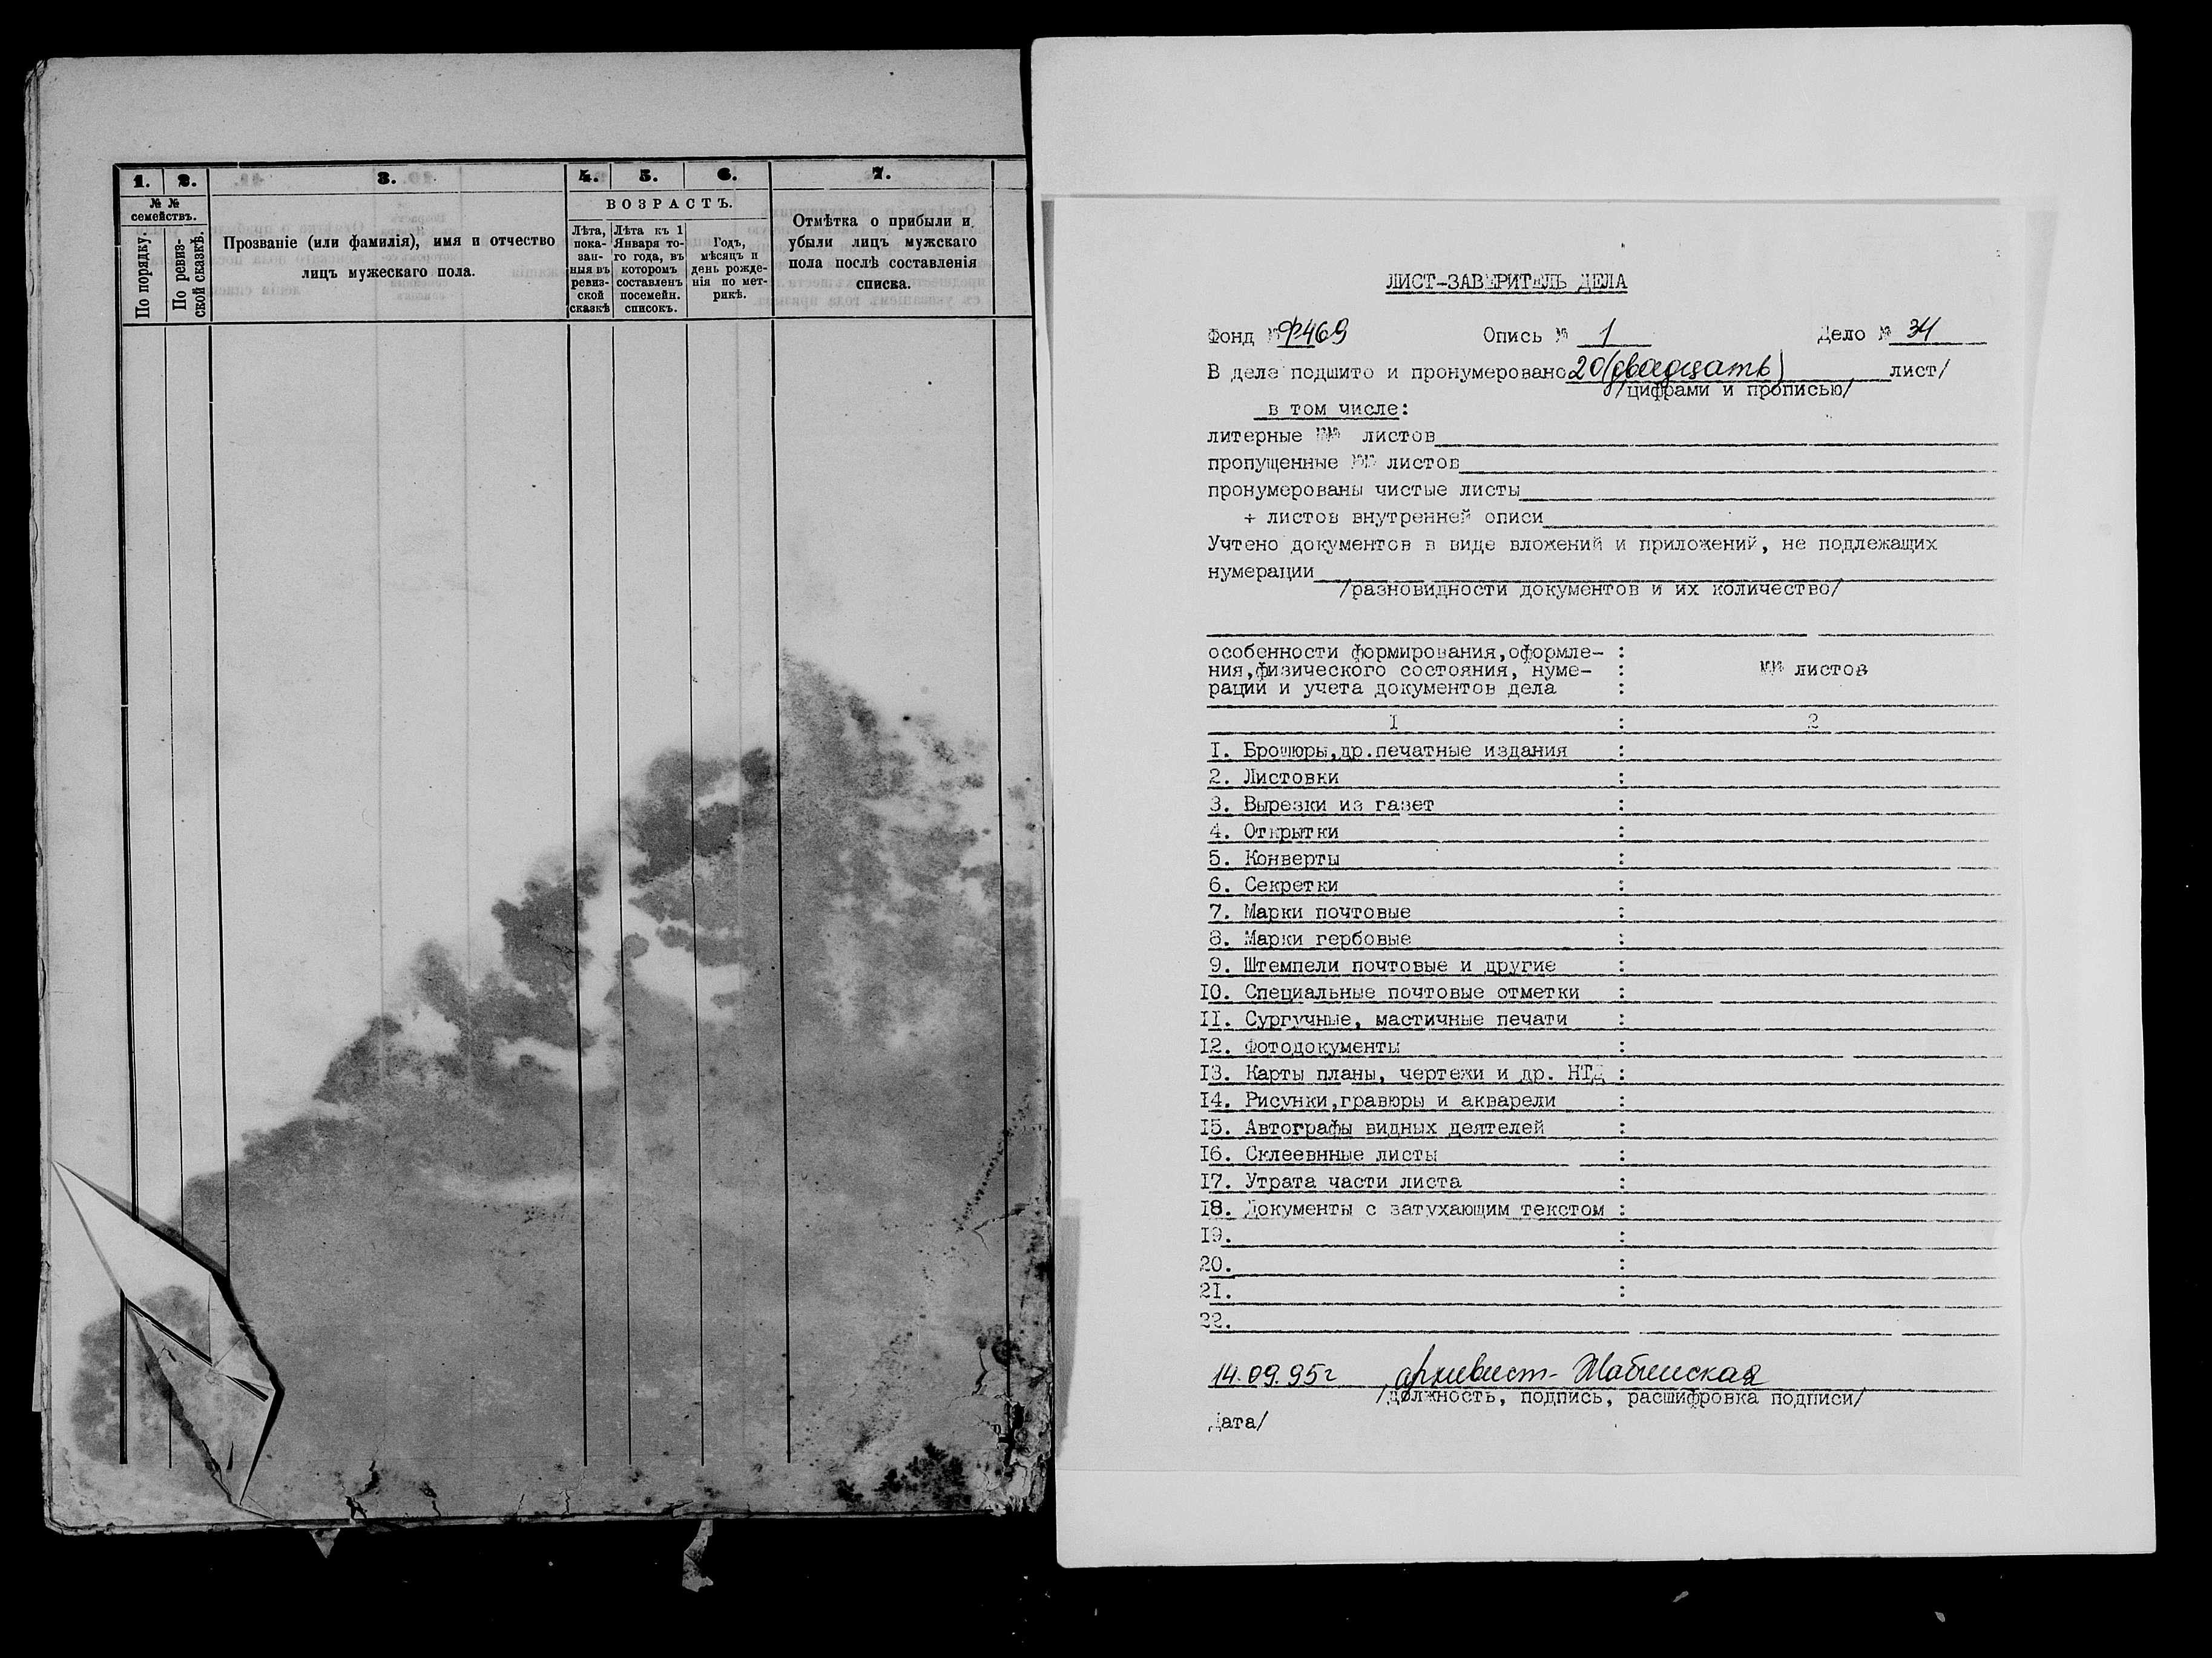 1. 2. 3. 4. 5. 6. 7.
№ №
семействъ.
По порядку.
По ревиз-
ской сказкѣ.
Прозваніе (или фамилія), имя и отчество
лицъ мужескаго пола.
ВОЗРАСТЪ.
Лѣта,
пока-
зан-
ныя въ
ревиз-
ской
сказкѣ
Лѣта къ 1
Января то-
го года, въ
которомъ
составленъ
посемейн.
списокъ.
Годъ,
мѣсяцъ и
день рожде-
нія по мет-
рикѣ.
Отмѣтка о прибыли и
убыли лицъ мужскаго
пола послѣ составленія
списка.
ЛИСТ-ЗАВЕРИТЕЛЬ ДЕЛА
Фонд № Ф469 Опись № 1 Дело № 34
В деле подшито и пронумеровано 20 (двадцать) лист/
/цифрами и прописью/
в том числе:
литерные №№ листов
пропущенные №№ листов
пронумерованы чистые листы
+ листов внутренней описи
Учтено документов в виде вложений и приложений, не подлежащих
нумерации
/разновидности документов и их количество/
особенности формирования,оформле- :
ния,физического состояния, нуме- : №№ листов
рации и учета документов дела :
I : 2
I. Брошюры,др.печатные издания :
2. Листовки :
3. Вырезки из газет :
4. Открытки :
5. Конверты :
6. Секретки :
7. Марки почтовые :
8. Марки гербовые :
9. Штемпели почтовые и другие :
I0. Специальные почтовые отметки :
II. Сургучные, мастичные печати :
I2. Фотодокументы :
I3. Карты планы, чертежи и др. НТД :
I4. Рисунки,гравюры и акварели :
I5. Автографы видных деятелей :
I6. Склеевнные листы :
I7. Утрата части листа :
I8. Документы с затухающим текстом :
I9. :
20. :
21. :
22.
14.09.95г архивист-
/должность, подпись, расшифровка подписи/
Дата/